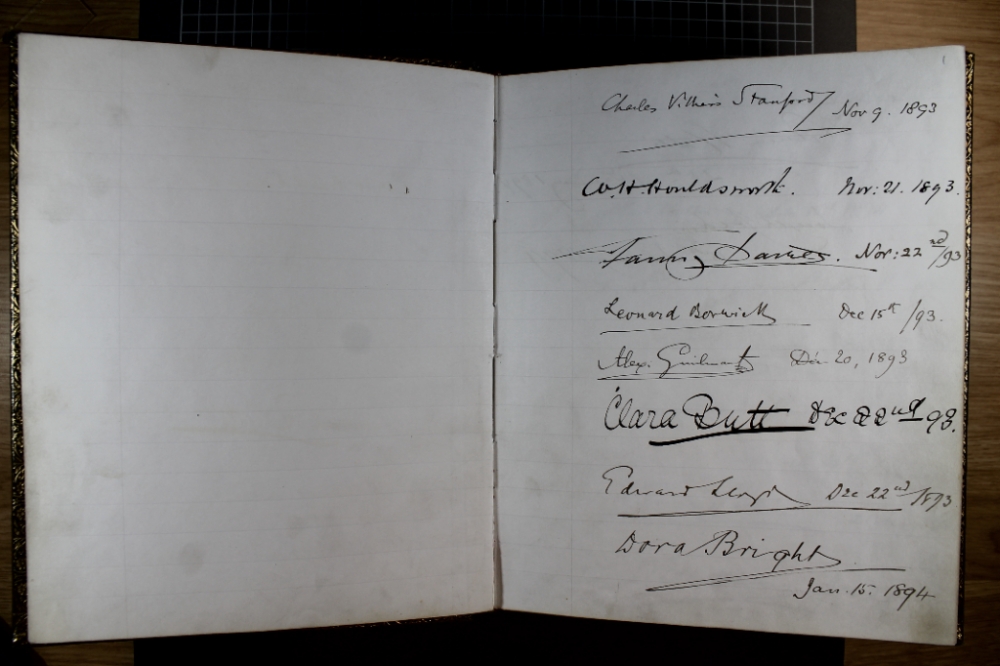 1
Charles Villiers Stanford Nov 9. 1893
W. H. Houldsworth. Nov: 21. 1893.
Fanny Davies. Nov: 22nd/93
Leonard Borwick Dec 15th /93.
Alex. Guilmant Déc 20, 1893
Clara Butt Dec 22nd 93.
Edward Lloyd Dec 22nd/1893
Dora Bright
Jan. 15. 1894